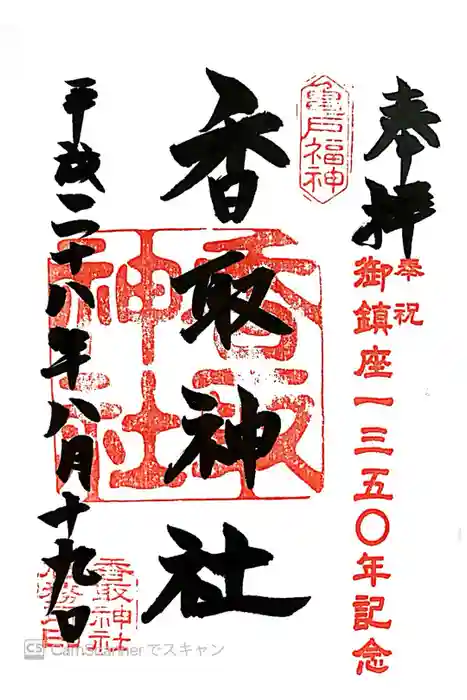 奉拝
奉祝
御鎮座一三五〇年記念
亀戸福神
香取神社
香取神社
平成二十八年八月十九日
香取神社
社務之印
CS CamScannerでスキャン